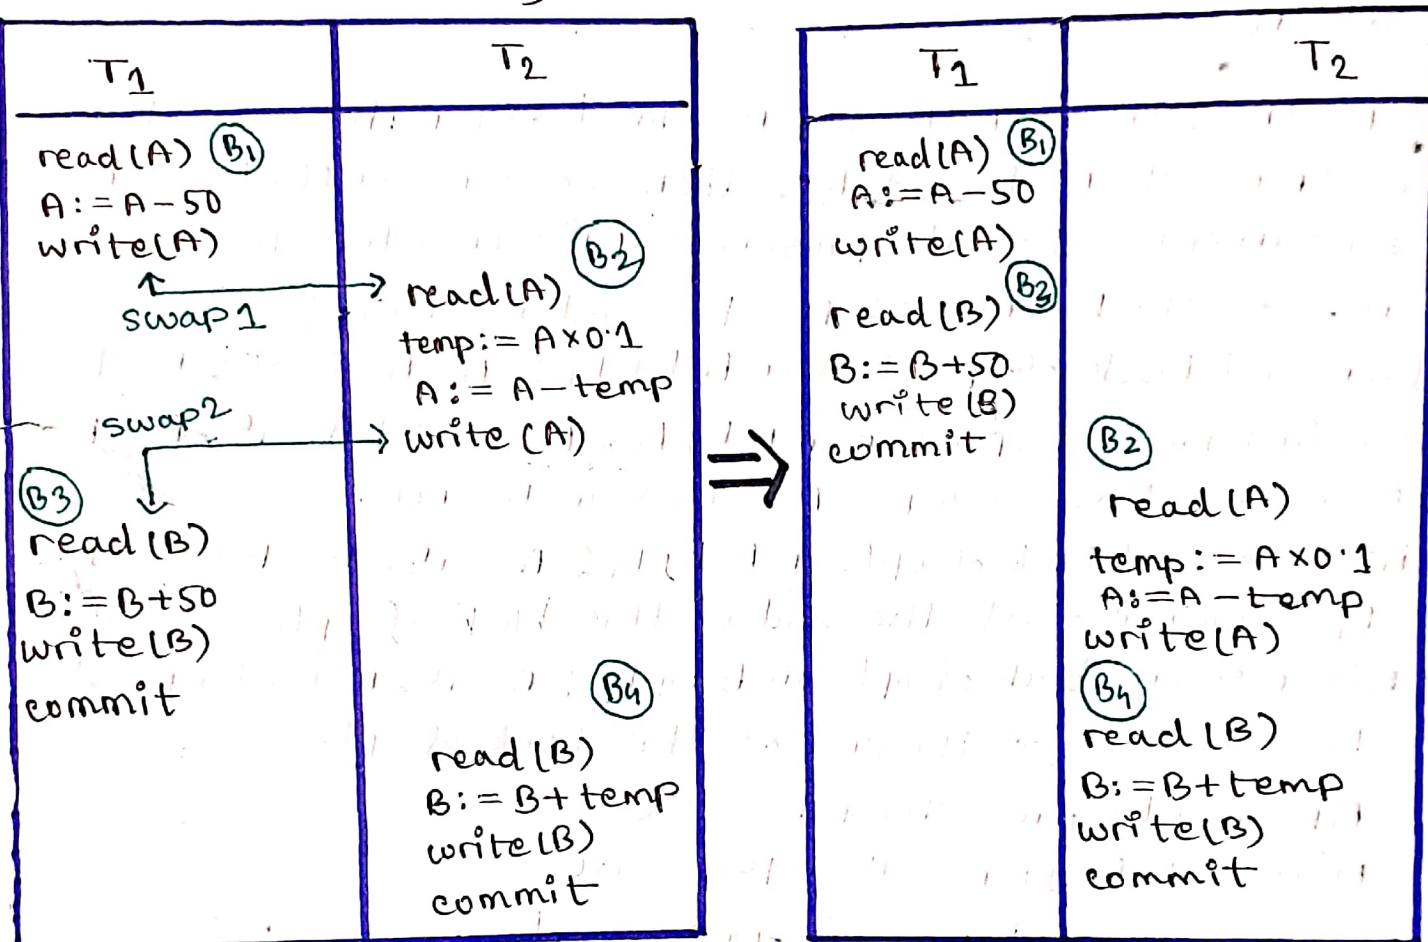 T1
T2
read(A) B1
A:=A-50
write(A)
B2
read(A)
swap1
temp:= A×0.1
A:= A-temp
swap2
write(A)
B3
read(B)
B:=B+50
write(B)
commit
B4
read(B)
B:=B+temp
write(B)
commit
⇒
T1
T2
read(A) B1
A:=A-50
write(A)
read(B) B3
B:=B+50
write(B)
commit
B2
read(A)
temp:= A×0.1
A:=A-temp
write(A)
B4
read(B)
B:=B+temp
write(B)
commit